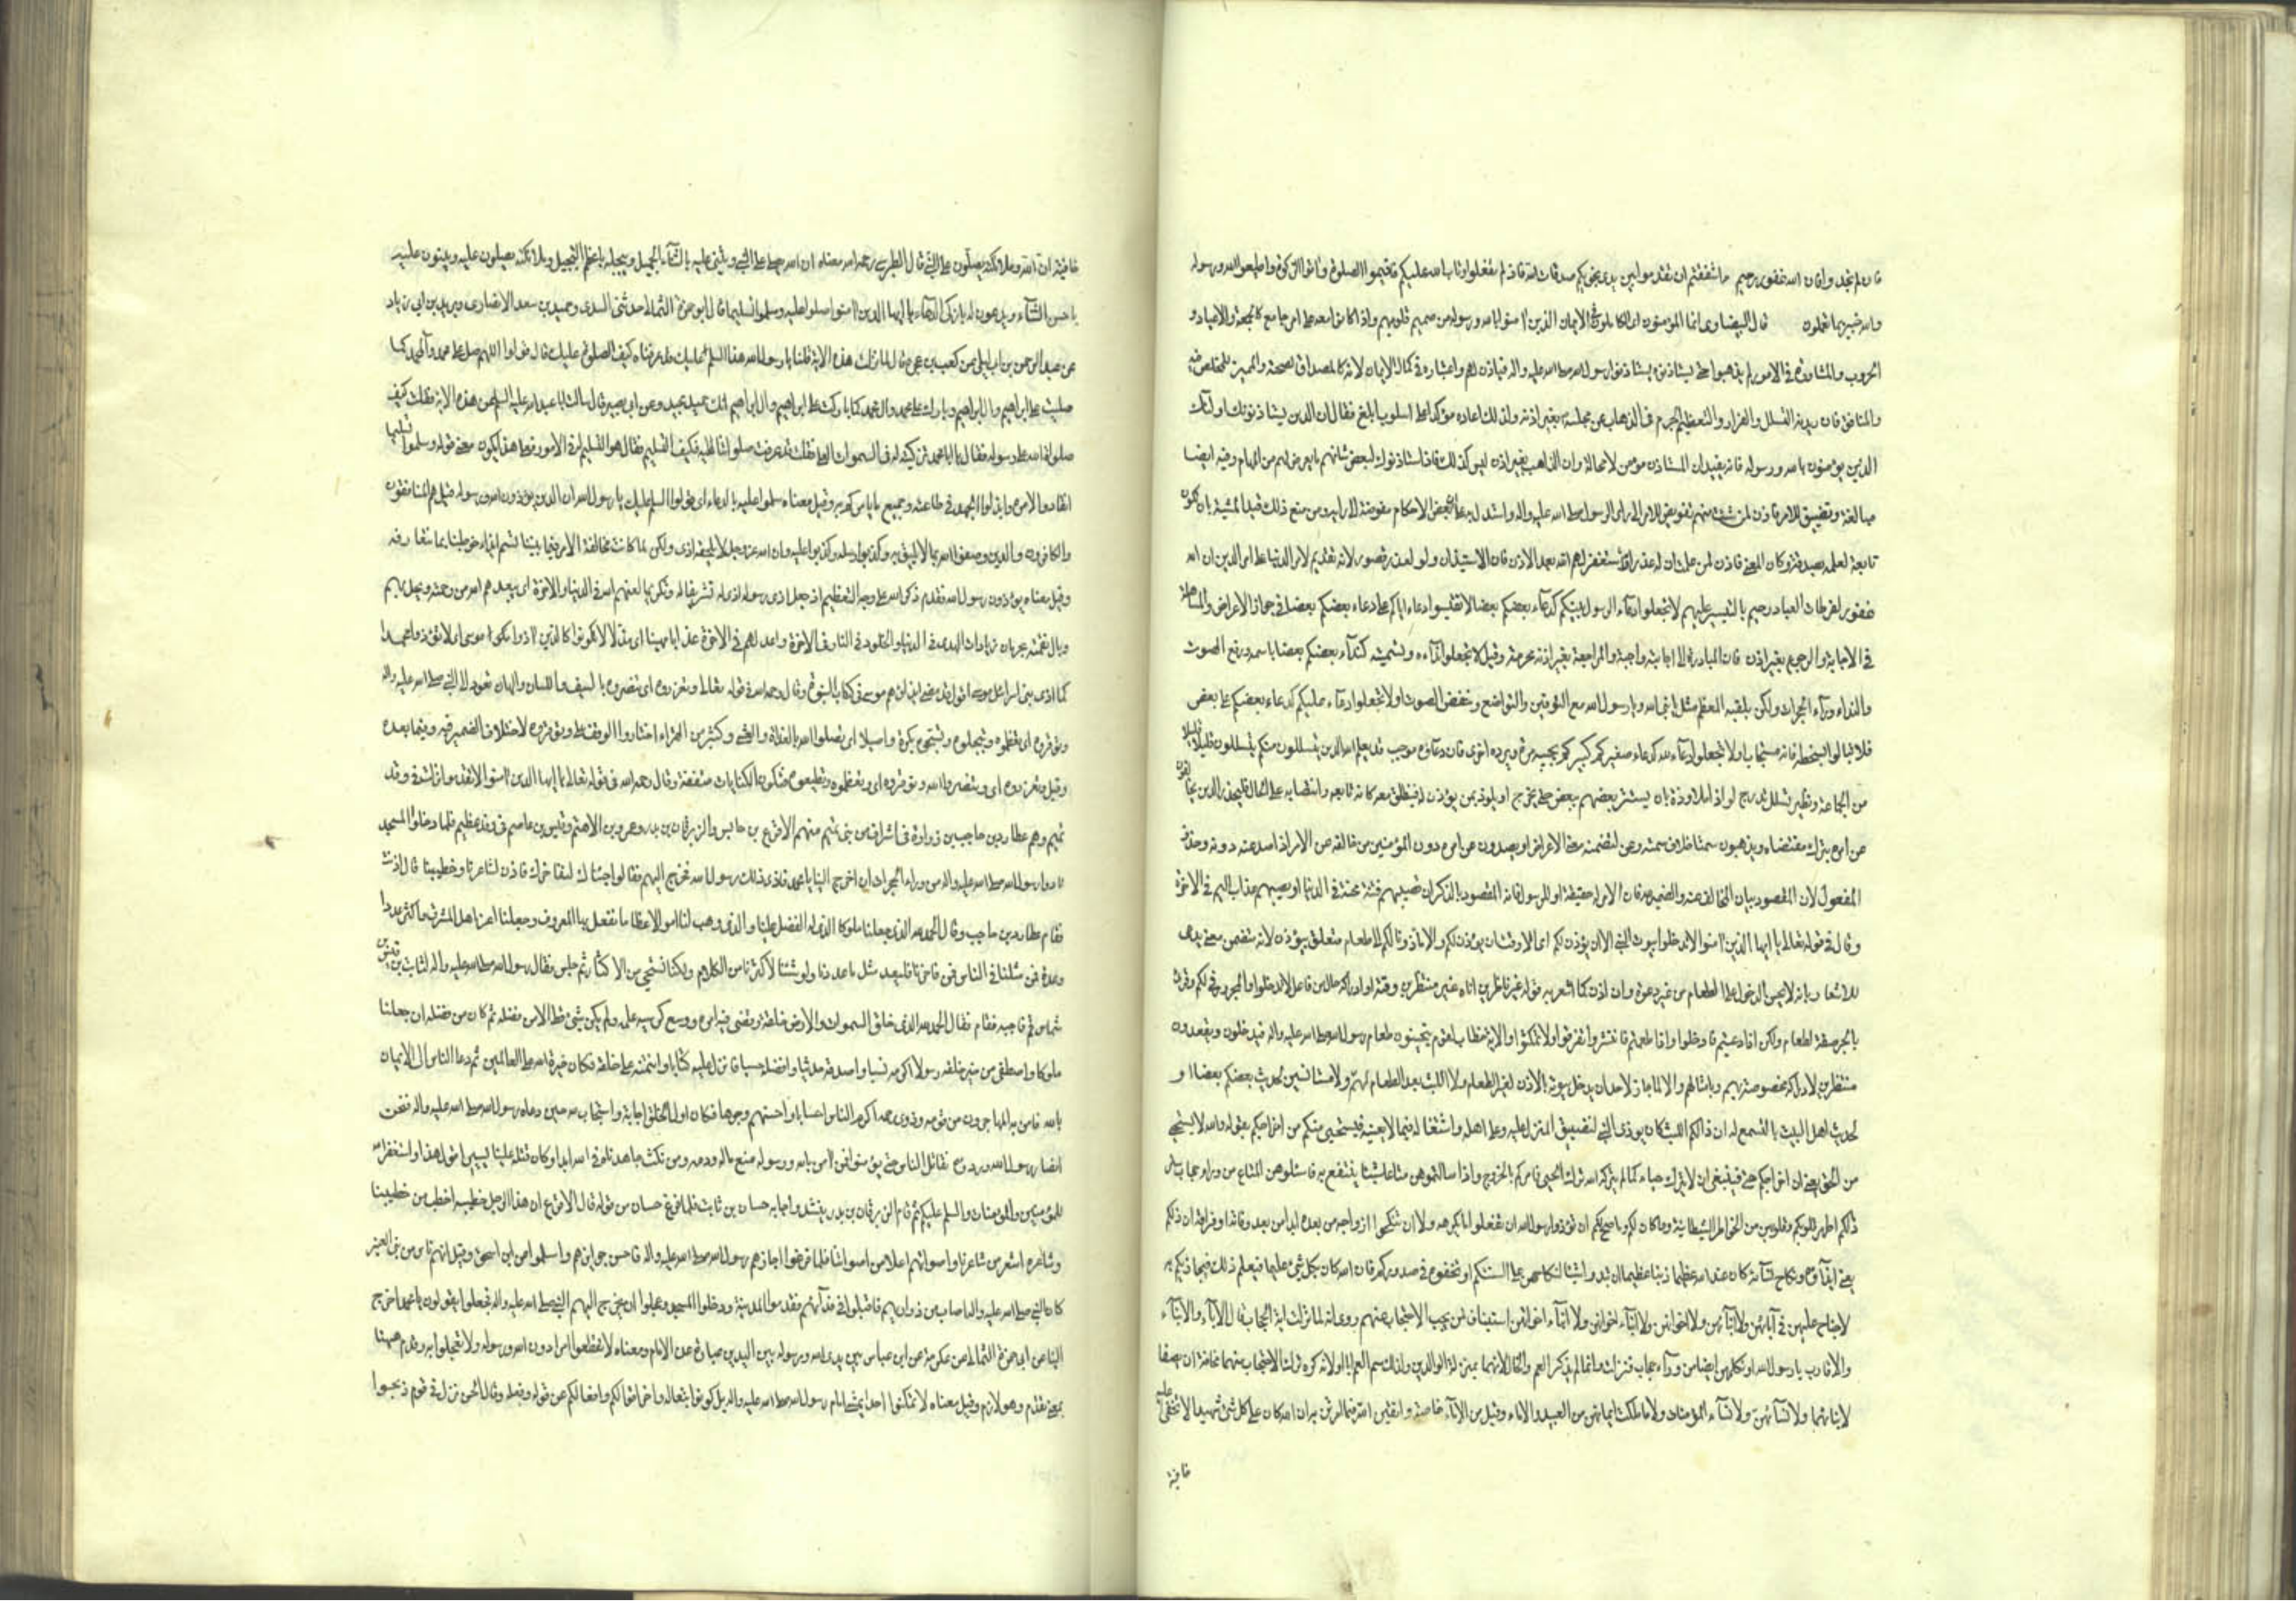 فان لم تجدوا فان الله غفور رحيم ءاشفقتم ان تقدموا بين يدي نجويكم صدقات فاذ لم تفعلوا وتاب الله عليكم فاقيموا الصلوة واتوا الزكوة واطيعوا الله ورسوله
والله خبير بما تعملون قال البيضاوي انما المؤمنون اي الكاملون في الايمان الذين امنوا بالله ورسوله من صميم قلوبهم واذا كانوا معه على امر جامع كالجمعة والاعياد و
الحروب والمشاورة في الامور لم يذهبوا حتى يستاذنوه يستاذنوا رسول الله صلى الله عليه واله فياذن لهم واعتباره في كمال الايمان لانه كالمصداق لصحته والمميز للمخلص فيه
والمنافق فان ديدنه التسلل والفرار ولتعظيم الجرم في الذهاب عن مجلسه بغير اذنه ولذلك اعاده مؤكدا على اسلوب ابلغ فقال ان الذين يستاذنونك اولئك
الذين يؤمنون بالله ورسوله فانه يفيد ان المستاذن مؤمن لا محالة وان الذاهب بغير اذن ليس كذلك فاذا استاذنوك لبعض شانهم ما يعرض لهم من المهام وفيه ايضا
مبالغة وتضييق للامر فاذن لمن شئت منهم تفويض للامر الى راي الرسول صلى الله عليه واله واستدل به على ان بعض الاحكام مفوضة الى رايه ومن منع ذلك قيد المشية بان تكون
تابعة لعلمه بصدقه وكان المعنى فاذن لمن علمت ان له عذرا واستغفر لهم الله بعد الاذن فان الاستيذان ولو لعذر قصور لانه تقديم لامر الدنيا على امر الدين ان الله
غفور لفرطات العباد رحيم بالتيسير عليهم لا تجعلوا دعاء الرسول بينكم كدعاء بعضكم بعضا لا تقيسوا دعاءه اياكم على دعاء بعضكم بعضا في جواز الاعراض والمساهلة
في الاجابة والرجوع بغير اذن فان المبادرة الى اجابته واجبة والمراجعة بغير اذنه محرمة وقيل لا تجعلوا نداءه وتسميته كنداء بعضكم بعضا باسمه ورفع الصوت
والنداء وراء الحجرات ولكن بلقبه المعظم مثل يا نبي الله ويا رسول الله مع التوقير والتواضع وخفض الصوت او لا تجعلوا دعاءه عليكم كدعاء بعضكم على بعض
فلا تبالوا بسخطه فانه مستجاب او لا تجعلوا دعاءه لله كدعاء صغيركم كبيركم يجيبه مرة ويرده اخرى فان دعاءه موجب قد يعلم الله الذين يتسللون منكم يتسللون قليلا قليلا
من الجماعة ونظير تسلل تدرج لواذا ملاوذة بان يستتر بعضهم ببعض حتى يخرج او يلوذ بمن يؤذن له فينطلق معه كانه تابعه وانتصابه على الحال فليحذر الذين يخالفون
عن امره بترك مقتضاه ويذهبون سمتا خلاف سمته وعن لتضمنه معنى الاعراض او يصدون عن امره دون المؤمنين من خالفه عن الامر اذا صد عنه دونه وحذف
المفعول لان المقصود بيان المخالف عنه والضمير لله فان الامر له حقيقة او للرسول فانه المقصود بالذكر ان تصيبهم فتنة محنة في الدنيا او يصيبهم عذاب اليم في الاخرة
وقال في قوله تعالى يا ايها الذين امنوا لا تدخلوا بيوت النبي الا ان يؤذن لكم اي الا وقت ان يؤذن لكم والا ماذونا لكم الى طعام متعلق بيؤذن لانه متضمن معنى يدعى
للاشعار بانه لا يحسن الدخول على الطعام من غير دعوة وان اذن كما اشعر به قوله غير ناظرين اناه غير منتظرين وقته او ادراكه حال من فاعل لا تدخلوا او المجرور في لكم وقرئ
بالجر صفة لطعام ولكن اذا دعيتم فادخلوا فاذا طعمتم فانتشروا تفرقوا ولا تمكثوا والاية خطاب لقوم يتحينون طعام رسول الله صلى الله عليه واله فيدخلون ويقعدون
منتظرين لادراكه مخصوصة بهم وبامثالهم والا لما جاز لاحد ان يدخل بيوته بالاذن لغير الطعام ولا اللبث بعد الطعام لمهم ولا مستانسين لحديث بعضكم بعضا او
لحديث اهل البيت بالتسمع له ان ذلكم اللبث كان يؤذي النبي لتضييق المنزل عليه وعلى اهله واشتغاله فيما لا يعنيه فيستحيي منكم من اخراجكم بقوله والله لا يستحيي
من الحق يعني ان اخراجكم حق فينبغي ان لا يترك حياء كما لم يتركه الله ترك الحيي فامركم بالخروج واذا سالتموهن متاعا شيئا ينتفع به فاسئلوهن المتاع من وراء حجاب ستر
ذلكم اطهر لقلوبكم وقلوبهن من الخواطر الشيطانية وما كان لكم وما صح لكم ان تؤذوا رسول الله ان تفعلوا ما يكرهه ولا ان تنكحوا ازواجه من بعده ابدا من بعد وفاته او فراقه ان ذلكم
يعني ايذاءه ونكاح نسائه كان عند الله عظيما ذنبا عظيما ان تبدوا شيئا لنكاحهن على السنتكم او تخفوه في صدوركم فان الله كان بكل شيء عليما فيعلم ذلك فيجازيكم به
لا جناح عليهن في آبائهن ولا ابنائهن ولا اخوانهن ولا ابناء اخوانهن ولا ابناء اخواتهن استيناف لمن لا يجب الاحتجاب عنهم روي انه لما نزلت اية الحجاب قال الاباء والابناء
والاقارب يا رسول الله او نكلمهن ايضا من وراء حجاب فنزلت وانما لم يذكر العم والخال لانهما بمنزلة الوالدين ولذلك سمي العم ابا او لانه كره ترك الاحتجاب عنهما مخافة ان يصفا
لابنائهما ولا نسائهن ولا نساء المؤمنات ولا ما ملكت ايمانهن من العبيد والاماء وقيل من الاماء خاصة واتقين الله فيما امرتن به ان الله كان على كل شيء شهيدا لا تخفى عليه
خافية
خافية ان الله وملائكته يصلون على النبي قال الطبرسي رحمه الله معناه ان الله يصلي على النبي ويثني عليه بالثناء الجميل ويبجله باعظم التبجيل وملائكته يصلون عليه ويثنون عليه
باحسن الثناء ويدعون له بازكى الدعاء يا ايها الذين امنوا صلوا عليه وسلموا تسليما قال ابو حمزة الثمالي حدثني السدي وحميد بن سعد الانصاري وبريد بن ابي زياد
عن عبد الرحمن بن ابي ليلى عن كعب بن عجرة قال لما نزلت هذه الاية قلنا يا رسول الله هذا السلم عليك قد عرفناه كيف الصلوة عليك قال قولوا اللهم صل على محمد وآل محمد كما
صليت على ابراهيم وال ابراهيم وبارك على محمد وال محمد كما باركت على ابراهيم وال ابراهيم انك حميد مجيد وعن ابي بصير قال سالت ابا عبد الله عليه السلم عن هذه الاية فقلت كيف
صلوة الله على رسوله فقال يا ابا محمد تزكيته له في السموات العلى فقلت قد عرفت صلواتنا عليه فكيف التسليم فقال هو التسليم له في الامور فعلى هذا يكون معنى قوله وسلموا تسليما
انقادوا لامره وابذلوا الجهد في طاعته وجميع ما يامركم به وقيل معناه سلموا عليه بالدعاء اي قولوا السلم عليك يا رسول الله ان الذين يؤذون الله ورسوله قيل هم المنافقون
والكافرون والذين وصفوا الله بما لا يليق به وكذبوا رسله وكذبوا عليه وان الله عز وجل لا يلحقه اذى ولكن لما كانت مخالفة الامر فيما بيننا تسمى ايذاء خوطبنا بما نتعارفه
وقيل معناه يؤذون رسول الله فقدم ذكر الله على وجه التعظيم اذ جعل اذى رسوله اذى له تشريفا له وتكريما لعنهم الله في الدنيا والاخرة اي يبعدهم الله من رحمته ويحل بهم
وبال نقمته بحرمان زيادات الهدى في الدنيا والخلود في النار في الاخرة واعد لهم في الاخرة عذابا مهينا اي مذلا لا تكونوا كالذين اذوا موسى اي لا تؤذوا محمدا
كما اذى بنو اسرائيل موسى اقول قد مضى ايذاؤهم موسى في كتاب النبوة وقال رحمه الله في قوله تعالى وتعزروه اي تنصروه بالسيف واللسان والهاء تعود الى النبي صلى الله عليه واله
وتوقروه اي تعظموه وتبجلوه وتسبحوه بكرة واصيلا اي تصلوا لله بالغداة والعشي وكثير من القراء اختاروا الوقف على وتوقروه لاختلاف الضمير فيه وفيما بعده
وقيل وتعزروه اي وتنصروا الله وتوقروه اي وتعظموه وتطيعوه فتكون الكنايات متفقة وقال رحمه الله في قوله تعالى يا ايها الذين امنوا لا تقدموا نزلت في وفد
تميم وهم عطارد بن حاجب بن زرارة في اشراف من بني تميم منهم الاقرع بن حابس والزبرقان بن بدر وعمرو بن الاهتم وقيس بن عاصم في وفد عظيم فلما دخلوا المسجد
نادوا رسول الله صلى الله عليه واله من وراء الحجرات ان اخرج الينا يا محمد فاذى ذلك رسول الله فخرج اليهم فقالوا جئناك لنفاخرك فاذن لشاعرنا وخطيبنا قال اذنت
فقام عطارد بن حاجب وقال الحمد لله الذي جعلنا ملوكا الذي له الفضل علينا والذي وهب لنا اموالا عظاما نفعل بها المعروف وجعلنا اعز اهل المشرق واكثر عددا
وعدة فمن مثلنا في الناس فمن فاخرنا فليعد مثل ما عددنا ولو شئنا لاكثرنا من الكلام ولكنا نستحيي من الاكثار ثم جلس فقال رسول الله صلى الله عليه واله لثابت بن قيس بن
شماس قم فاجبه فقام فقال الحمد لله الذي خلق السموات والارض خلقه وقضى فيه امره ووسع كرسيه علمه ولم يكن شيء قط الا من فضله ثم كان من فضله ان جعلنا
ملوكا واصطفى من خير خلقه رسولا اكرمه نسبا واصدقه حديثا وافضله حسبا فانزل عليه كتابا وائتمنه على خلقه فكان خيرة الله على العالمين ثم دعا الناس الى الايمان
بالله فامن به المهاجرون من قومه وذوي رحمه اكرم الناس احسابا واحسنهم وجوها فكان اول الخلق اجابة واستجاب لله حين دعاه رسول الله صلى الله عليه واله فنحن
انصار رسول الله وردءه نقاتل الناس حتى يؤمنوا فمن امن بالله ورسوله منع ماله ودمه ومن نكث جاهدناه في الله ابدا وكان قتله علينا يسيرا اقول هذا واستغفر الله
للمؤمنين والمؤمنات والسلم عليكم ثم قام الزبرقان بن بدر ينشد واجابه حسان بن ثابت فلما فرغ حسان من قوله قال الاقرع ان هذا الرجل خطيبه اخطب من خطيبنا
وشاعره اشعر من شاعرنا واصواتهم اعلا من اصواتنا فلما فرغوا اجازهم رسول الله صلى الله عليه واله فاحسن جوائزهم واسلموا عن ابن اسحق وقيل انهم ناس من بني العنبر
كان النبي صلى الله عليه واله اصاب من ذراريهم فاقبلوا في فدائهم فقدموا المدينة ودخلوا المسجد وعجلوا ان يخرج اليهم النبي صلى الله عليه واله فجعلوا يقولون يا محمد اخرج
الينا عن ابي حمزة الثمالي عن عكرمة عن ابن عباس بين يدي الله ورسوله بين اليدين عبارة عن الامام ومعناه لا تقطعوا امرا دون الله ورسوله ولا تعجلوا به وقدم ههنا
بمعنى تقدم وهو لازم وقيل معناه لا تمكنوا احدا يمشي امام رسول الله صلى الله عليه واله بل كونوا تبعا له واخروا اقوالكم وافعالكم عن قوله وفعله وقال الحسن نزل في قوم ذبحوا